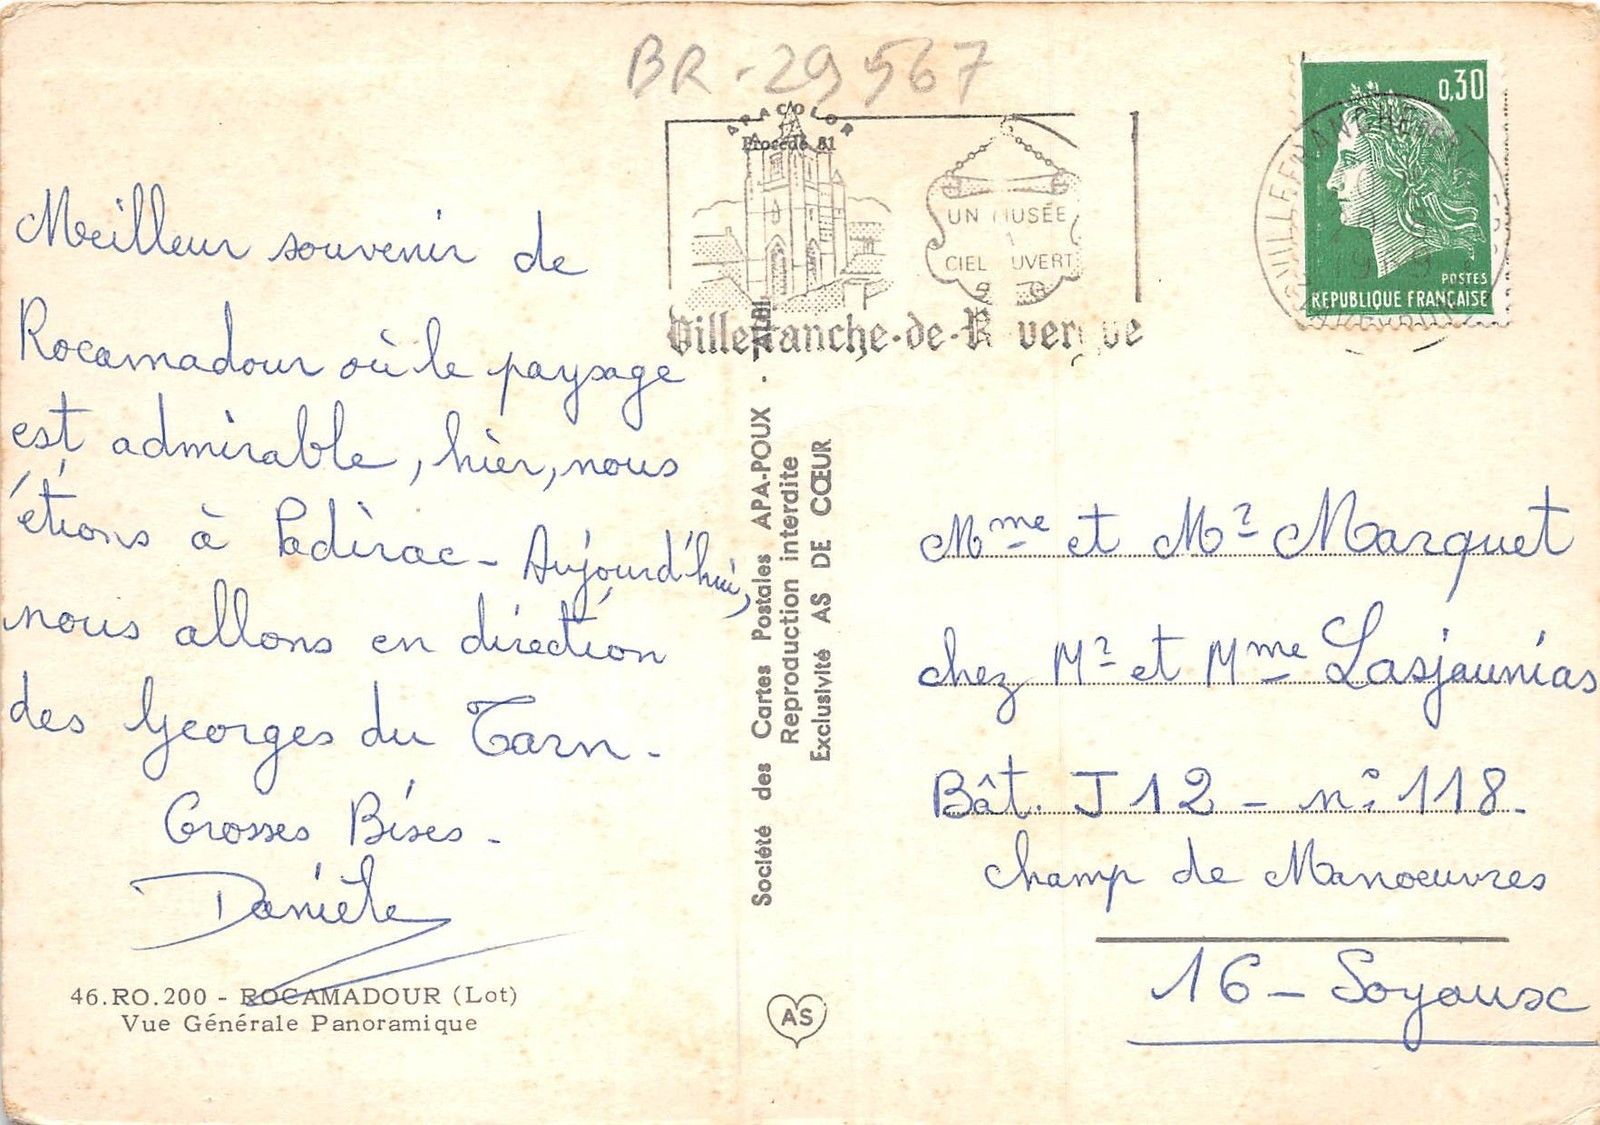 BR-29567
APACOLOR
Procédé 81
UN MUSÉE
A
CIEL OUVERT
Villefranche-de-Rouergue
0,30
POSTES
REPUBLIQUE FRANÇAISE
Meilleur souvenir de
Rocamadour où le paysage
est admirable, hier, nous
étions à Padirac - Aujourd'hui,
nous allons en direction
des Georges du Tarn.
Grosses Bises.
Danièle
46.RO.200 - ROCAMADOUR (Lot)
Vue Générale Panoramique
Société des Cartes Postales APA-POUX - ALBI
Reproduction interdite
Exclusivité AS DE CŒUR
AS
Mme et Mr Marquet
chez Mr et Mme Lasjaunias
Bât. J12 - n° 118.
champ de Manoeuvres
16 - Soyaux